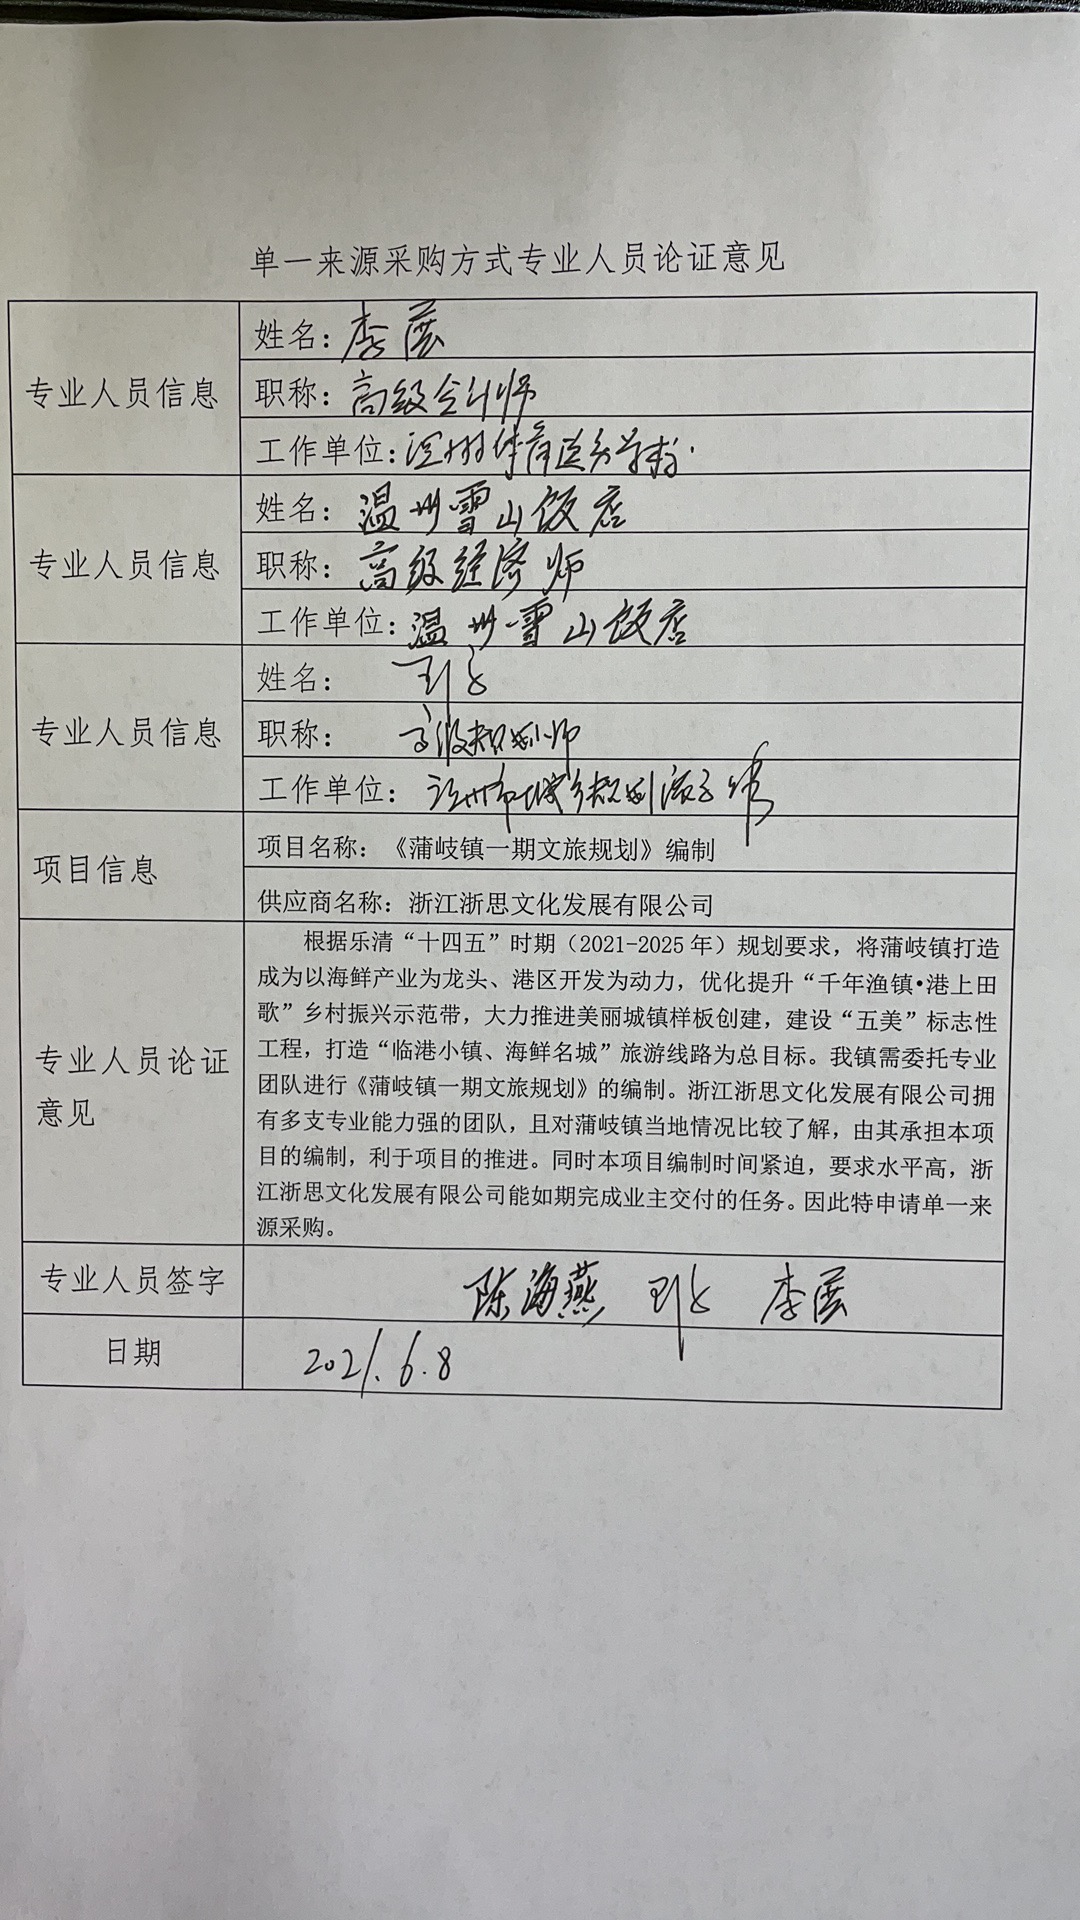 单一来源采购方式专业人员论证意见
专业人员信息
姓名：李
职称：高级会计师
工作单位：温州体育运动学校
专业人员信息
姓名：温州雪山饭店
职称：高级经济师
工作单位：温州雪山饭店
专业人员信息
姓名：
职称：高级规划师
工作单位：温州市城乡规划
项目信息
项目名称：《蒲岐镇一期文旅规划》编制
供应商名称：浙江浙思文化发展有限公司
专业人员论证
意见
根据乐清“十四五”时期（2021-2025年）规划要求，将蒲岐镇打造
成为以海鲜产业为龙头、港区开发为动力，优化提升“千年渔镇•港上田
歌”乡村振兴示范带，大力推进美丽城镇样板创建，建设“五美”标志性
工程，打造“临港小镇、海鲜名城”旅游线路为总目标。我镇需委托专业
团队进行《蒲岐镇一期文旅规划》的编制。浙江浙思文化发展有限公司拥
有多支专业能力强的团队，且对蒲岐镇当地情况比较了解，由其承担本项
目的编制，利于项目的推进。同时本项目编制时间紧迫，要求水平高，浙
江浙思文化发展有限公司能如期完成业主交付的任务。因此特申请单一来
源采购。
专业人员签字
陈海燕 李
日期
2021.6.8